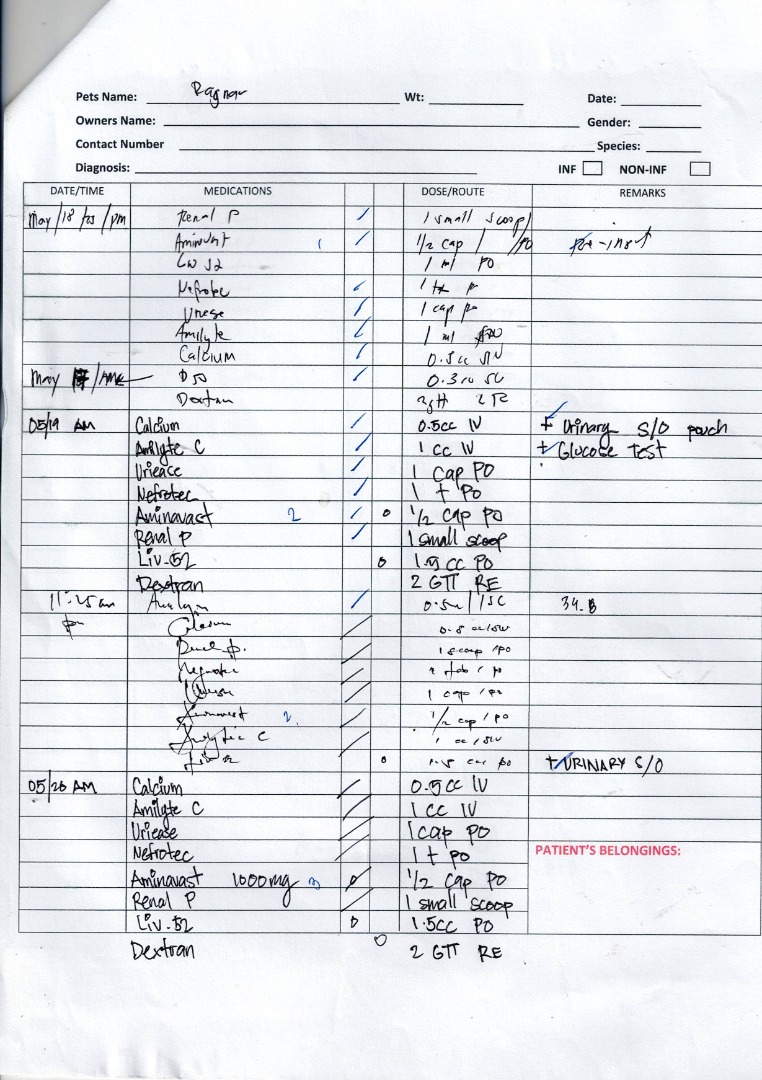 Pets Name: Ragnar Wt: Date:
Owners Name: Gender:
Contact Number Species:
Diagnosis: INF NON-INF
DATE/TIME MEDICATIONS DOSE/ROUTE REMARKS
May/18/23/pm Renal P 1 small scoop/
Aminvast 1/2 cap / PO
LIV 52 1 ml PO
Nefrotec
Uriease 1 cap po
Amilyte 1 ml
Calcium 0.5cc
May /AM D50 0.3cc
Dextran
05/19 AM Calcium 0.5cc IV + Urinary S/O pouch
Amilyte C 1 cc IV + Glucose Test
Uriease 1 cap PO
Nefrotec 1 t PO
Aminavast 2 1/2 cap PO
Renal P 1 small scoop
Liv-52 1.5 cc PO
Dextran 2 GTT RE
11:25am /SC
pm Calcium 0.5 cc/
Renal p. 1 scoop /po
Nefrotec / po
1 cap / po
Aminavast 2 1/2 cap / po
Amilytic C 1 cc /
1.5 cc po + URINARY S/O
05/20 AM Calcium 0.5cc IV
Amilyte C 1 cc IV
Uriease 1 cap PO
Nefrotec 1 t po
PATIENT'S BELONGINGS:
Aminavast 1000mg 3 1/2 cap PO
Renal P 1 small scoop
Liv-52 1.5cc PO
Dextran 2 GTT RE